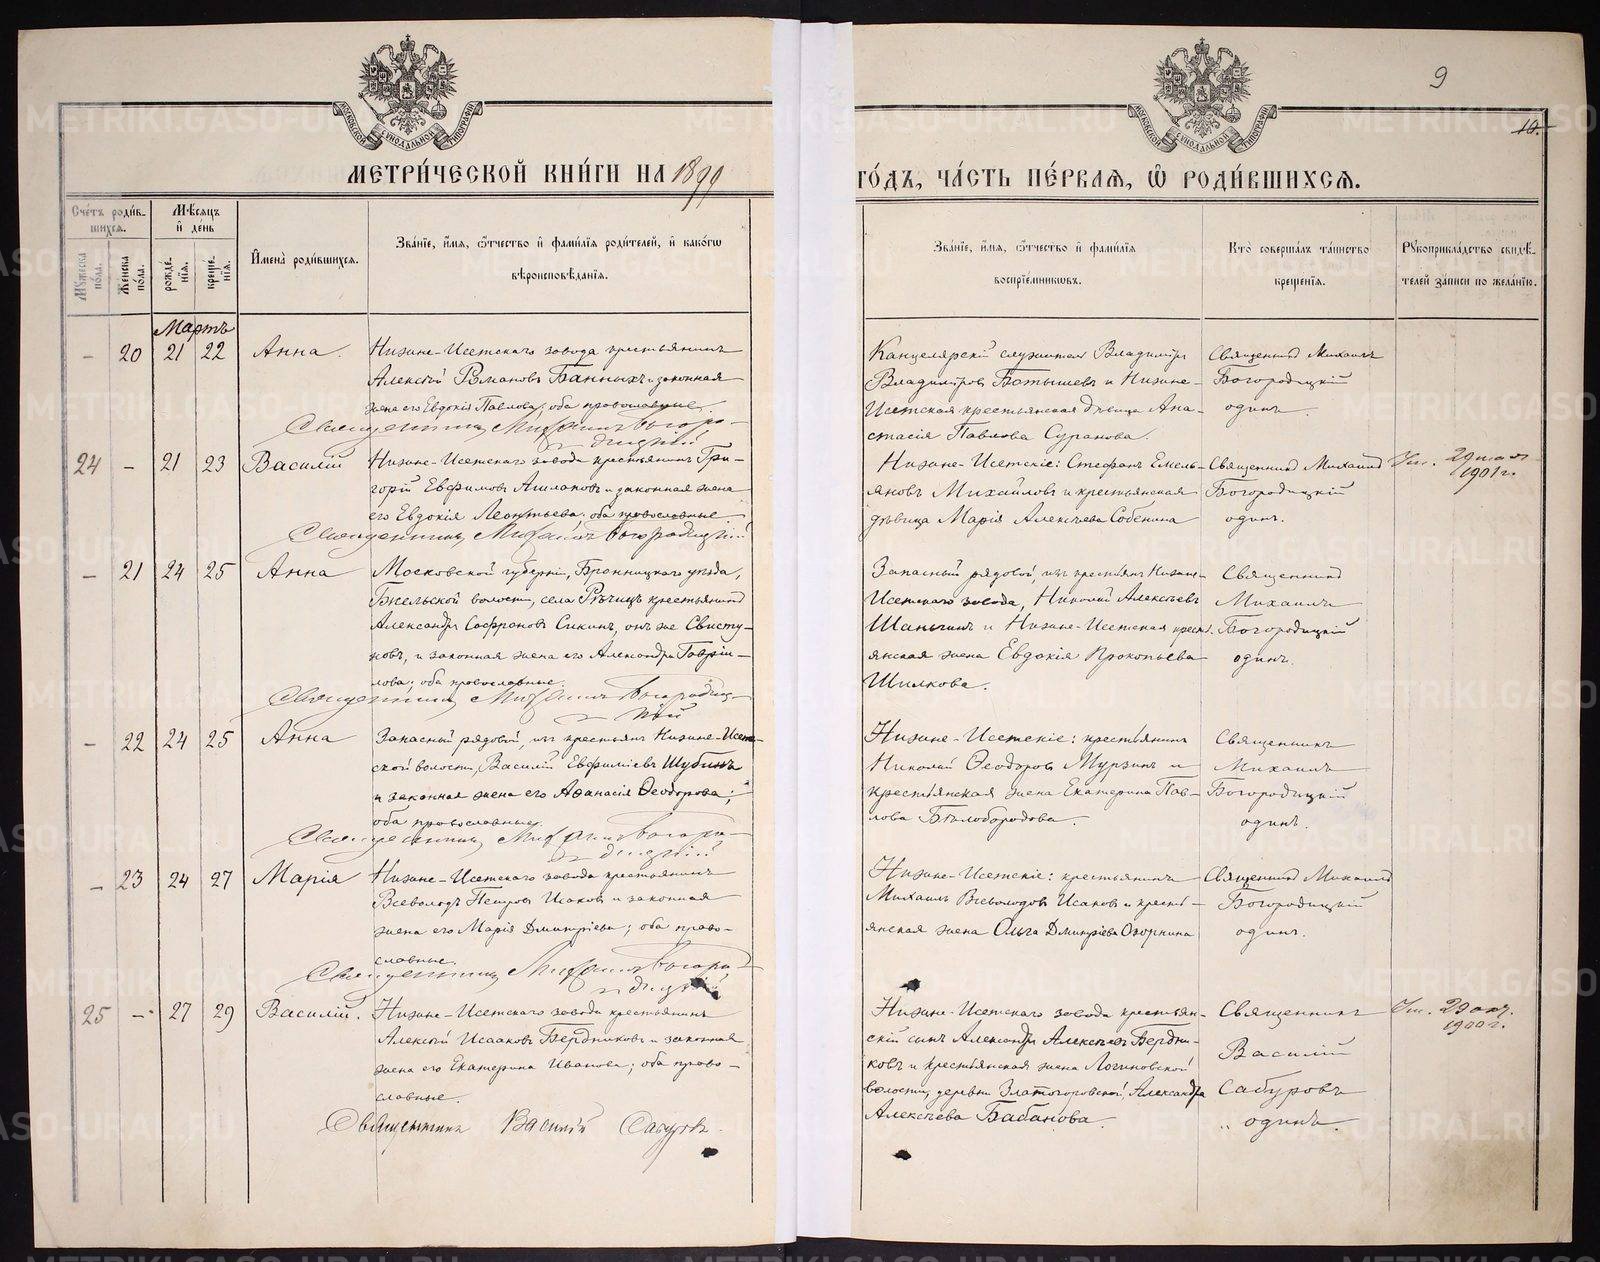 9
10.
МЕТРИ́ЧЕСКОЙ КНИ́ГИ НА 1899
ГО́ДЪ, ЧА́СТЬ ПЕ́РВАѦ, Ѡ҆ РОДИ́ВШИХСѦ.
Сче́тъ роди́в-
шихсѧ.
Мꙋ́жеска
по́ла.
Же́нска
по́ла.
Мѣ́сѧцъ
и҆ де́нь
рожде́-
нїѧ.
креще́-
нїѧ.
И҆мена̀ роди́вшихсѧ.
Зва́нїе, и҆́мѧ, ѻ҆́тчество и҆ фами́лїѧ роди́телей, и҆ како́гѡ
вѣроисповѣ́данїѧ.
Зва́нїе, и҆́мѧ, ѻ҆́тчество и҆ фами́лїѧ
воспрїе́мникѡвъ.
Кто̀ соверша́лъ та́инство
креще́нїѧ.
Рꙋкоприкла́дство свидѣ́-
телей за́писи по жела́нїю.
Мартъ
– 20 21 22 Анна.
Нижне-Исетскаго завода крестьянинъ
Алексѣй Романовъ Банныхъ и законная
жена его Евдокія Павлова; оба православные.
Священникъ Михаилъ Богоро-
дицкій
Канцелярскій служитель Владиміръ
Владиміровъ Батышевъ и Нижне-
Исетская крестьянская дѣвица Ана-
стасія Павлова Суранова.
Священникъ Михаилъ
Богородицкій
одинъ.
24 – 21 23 Василій
Нижне-Исетскаго завода крестьянинъ Гри-
горій Евфимовъ и законная жена
его Евдокія Леонтьева; оба православные
Священникъ Михаилъ Богородицкій
Нижне-Исетскіе: Стефанъ Емель-
яновъ Михайловъ и крестьянская
дѣвица Марія Алексѣева Собенина
Священникъ Михаилъ
Богородицкій
одинъ.
1901 г.
– 21 24 25 Анна
Московской губерніи, Бронницкаго уѣзда,
волости, села Рѣчицъ крестьянинъ
Александръ Софроновъ Сикинъ, онъ же Свисту-
новъ, и законная жена его Александра Гаврі-
лова; оба православные.
Священникъ Михаилъ Богородиц-
кій
Запасный рядовой, изъ крестьянъ Нижне-
Исетскаго завода, Николай Алексѣевъ
Шаньгинъ и Нижне-Исетская крест-
янская жена Евдокія Прокопьева
Шилкова.
Священникъ
Михаилъ
Богородицкій
одинъ.
– 22 24 25 Анна
Запасный рядовой, изъ крестьянъ Нижне-Исет-
ской волости, Василій Евфиміевъ Шубинъ
и законная жена его Аѳанасія Ѳеодорова;
оба православные.
Священникъ Михаилъ Богоро-
дицкій
Нижне-Исетскіе: крестьянинъ
Николай Ѳеодоровъ Мурзинъ и
крестьянская жена Екатерина Пав-
лова Бѣлобородова.
Священникъ
Михаилъ
Богородицкій
одинъ.
– 23 24 27 Марія
Нижне-Исетскаго завода крестьянинъ
Всеволодъ Петровъ Исаковъ и законная
жена его Марія Дмитріева; оба право-
славные.
Священникъ Михаилъ Богоро-
дицкій
Нижне-Исетскіе: крестьянинъ
Михаилъ Всеволодовъ Исаковъ и кресть-
янская жена Ольга Дмитріева Озорнина
Священникъ Михаилъ
Богородицкій
одинъ.
25 – 27 29 Василій.
Нижне-Исетскаго завода крестьянинъ
Алексѣй Исааковъ Бердниковъ и законная
жена его Екатерина Иванова; оба право-
славные.
Священникъ Василій Сабуровъ.
Нижне-Исетскаго завода крестьян-
скій сынъ Александръ Алексѣевъ Бердни-
ковъ и крестьянская жена Логиновской
волости, деревни Златогоровской, Александра
Алексѣева Бабанова.
Священникъ
Василій
Сабуровъ
одинъ.
1900 г.
METRIKI.GASO-URAL.RU